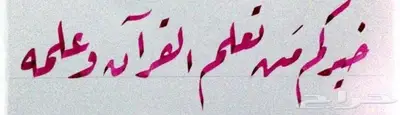 خيركم مَن تعلم القرآن وعلمه
حراج